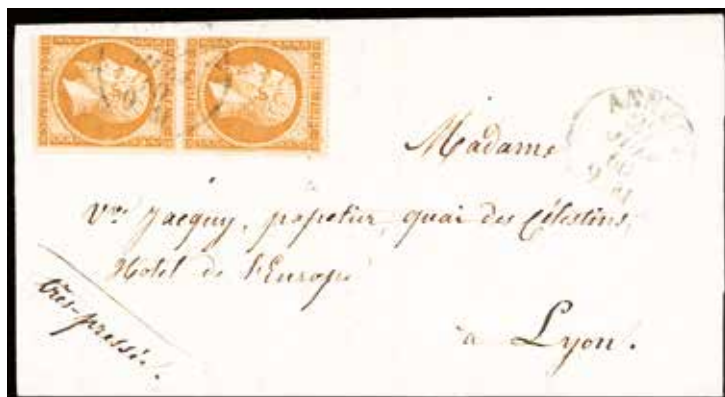 Madame
Vve Jacquy, papetier, quai des Célestins,
Hotel de l'Europe
à Lyon.
très-pressée.